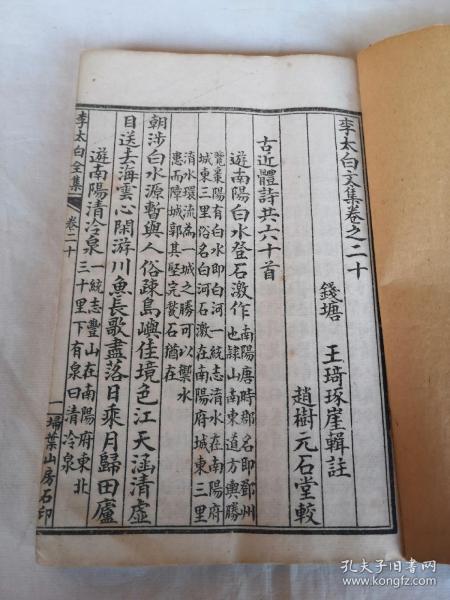 李太白文集卷之二十
錢塘　王琦琢崖輯註
趙樹元石堂較
古近體詩共六十首
遊南陽白水登石激作 南陽唐時郡名即鄧州
也隸山南東道方輿勝
覽棗陽有白水即白河一統志清水在南陽府
城東三里俗名白河石激在南陽府城東三里
清水環流為一城之勝可以禦水
患而障城郭其堅完甃石猶在
朝涉白水源暫與人俗疎島嶼佳境色江天涵清虛
目送去海雲心閑游川魚長歌盡落日乘月歸田廬
遊南陽清泠泉 一統志豐山在南陽府東北
三十里下有泉曰清泠泉
李太白全集
卷二十
一
埽葉山房石印
孔夫子旧书网
www.kongfz.com